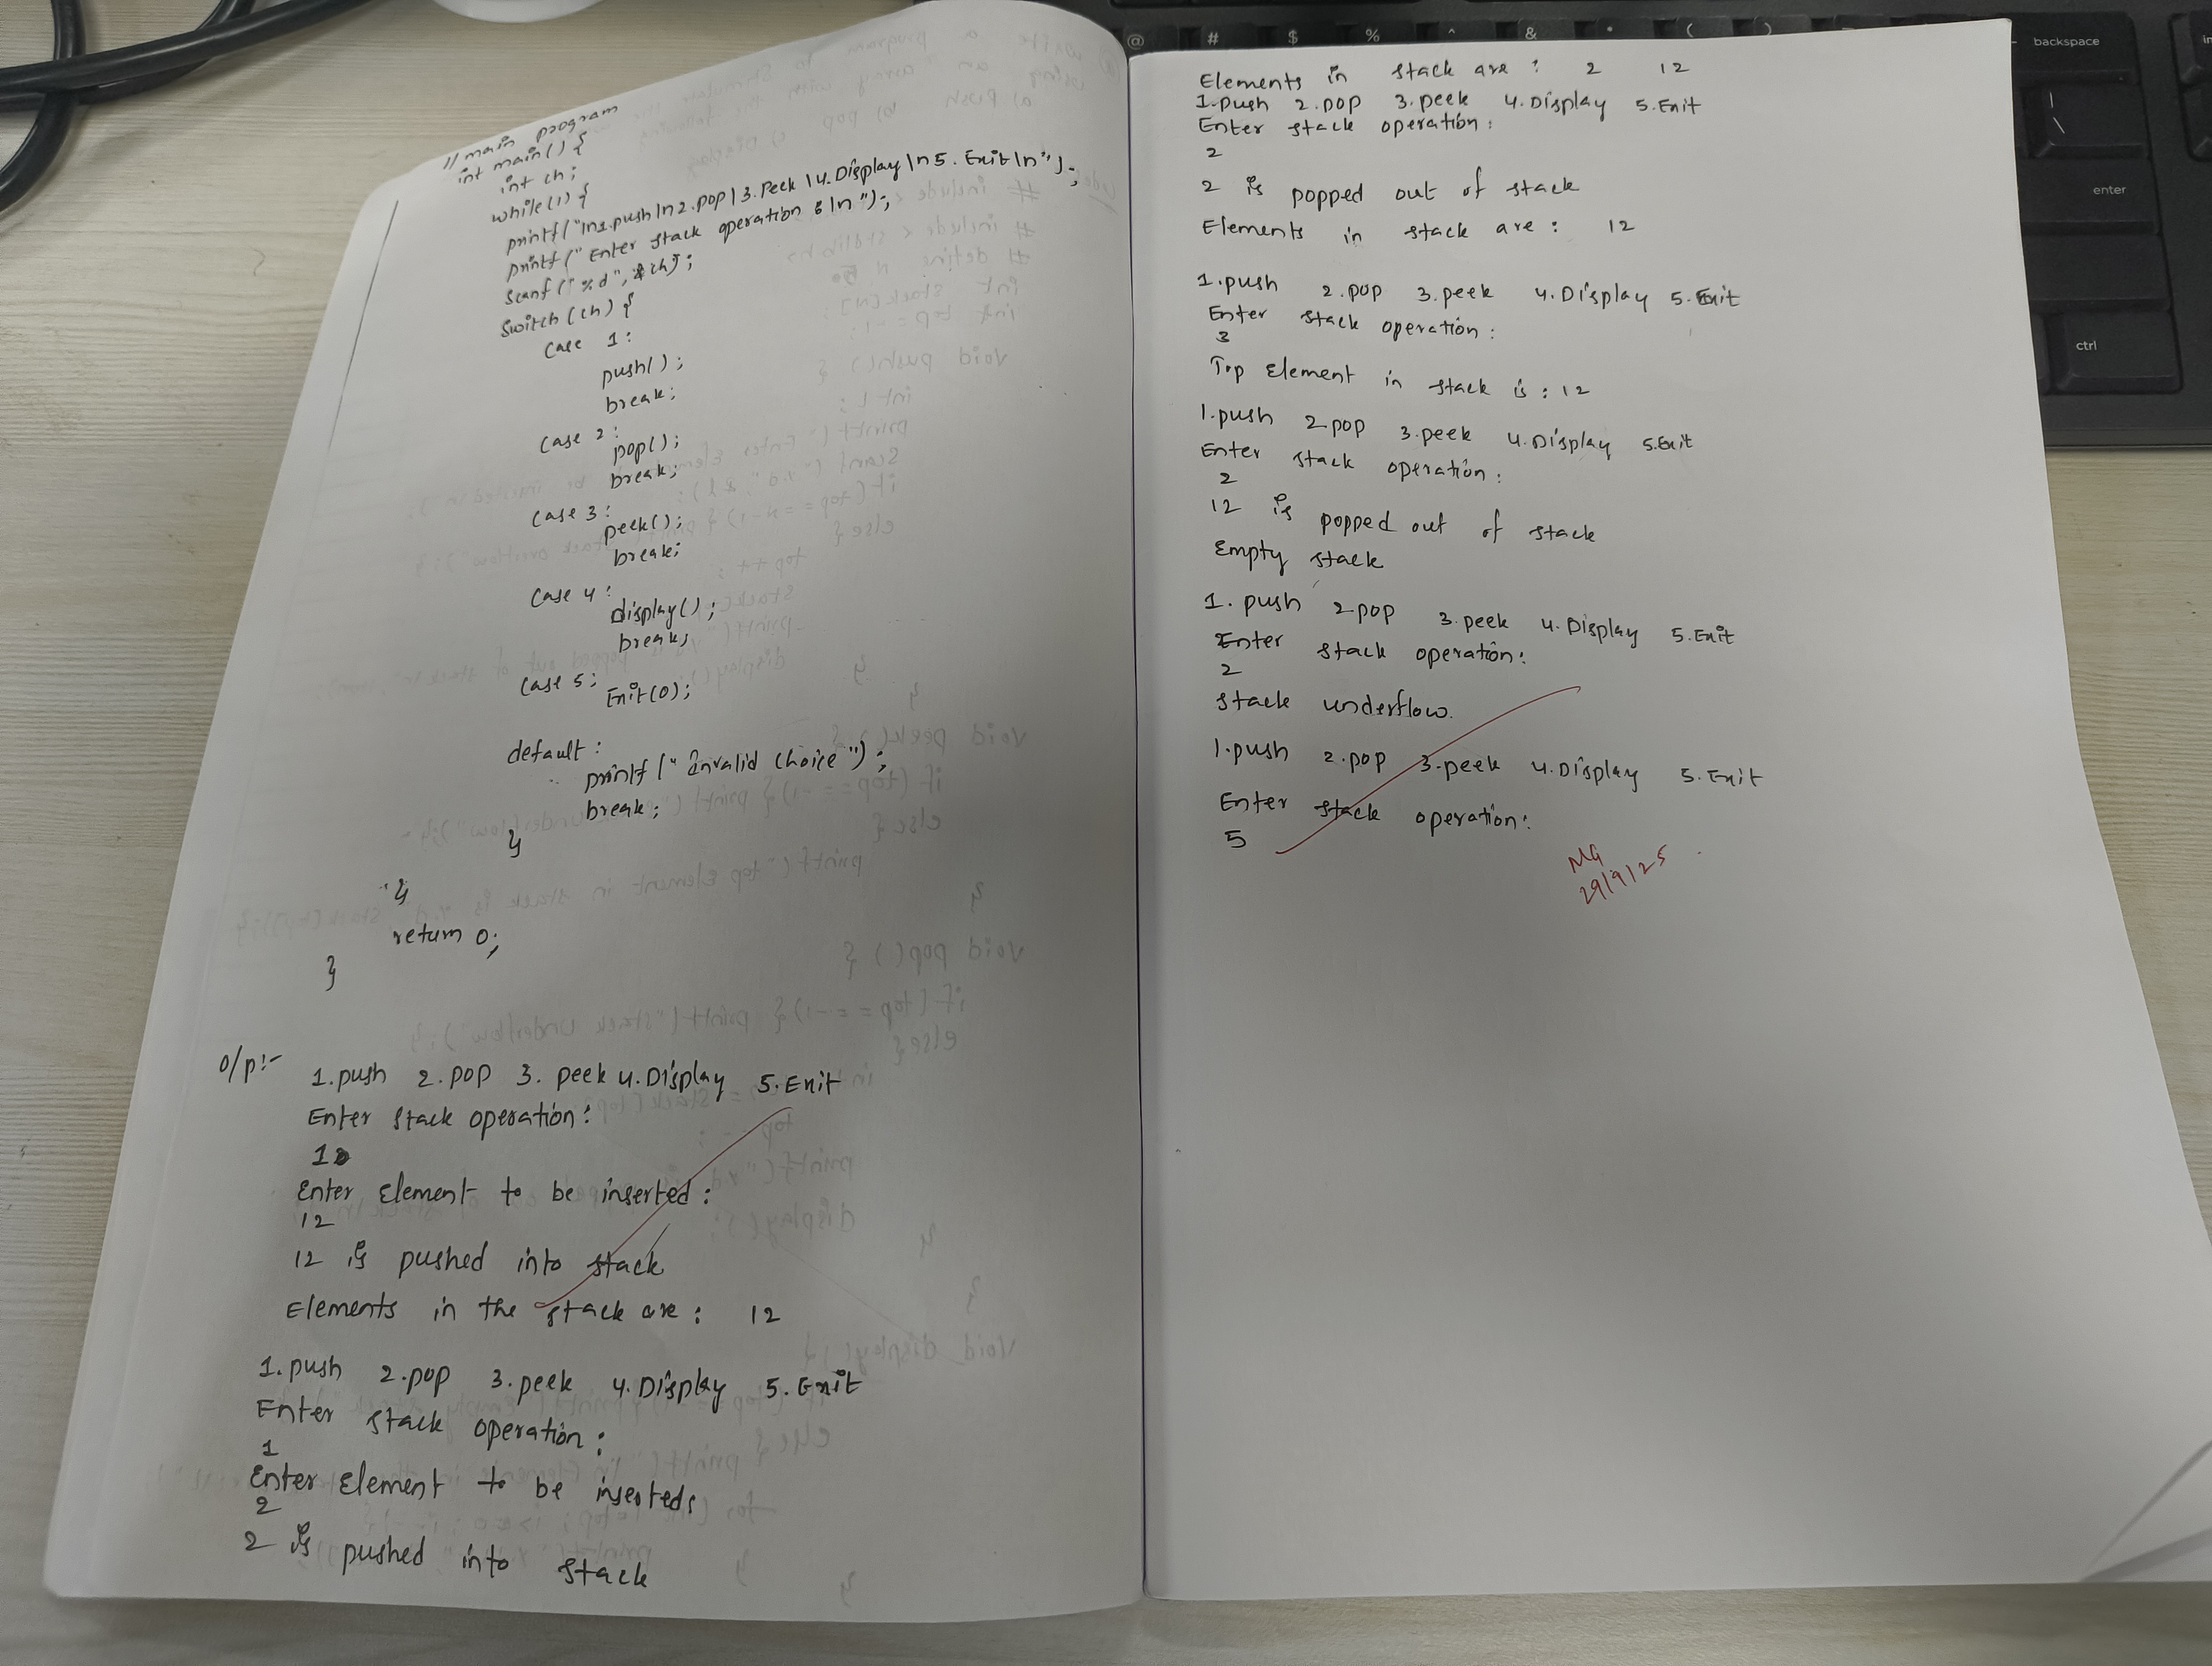 // main program
int main() {
int ch;
while(1) {
printf("\n1.push\n2.pop|3.Peek|4.Display\n5.Exit\n");
printf("Enter stack operation :\n");
scanf("%d", &ch);
Switch(ch) {
case 1:
push();
break;
case 2:
pop();
break;
case 3:
peek();
break;
case 4:
display();
break;
case 5:
Exit(0);
default:
printf("invalid choice");
break;
}
}
return 0;
}
O/p:-
1.push 2.pop 3.peek 4.Display 5.Exit
Enter stack operation:
1
Enter Element to be inserted:
12
12 is pushed into stack
Elements in the stack are: 12
1.push 2.pop 3.peek 4.Display 5.Exit
Enter stack operation:
1
Enter Element to be inserted:
2
2 is pushed into stack
Elements in stack are: 2 12
1.push 2.pop 3.peek 4.Display 5.Exit
Enter stack operation:
2
2 is popped out of stack
Elements in stack are: 12
1.push 2.pop 3.peek 4.Display 5.Exit
Enter stack operation:
3
Top Element in stack is: 12
1.push 2.pop 3.peek 4.Display 5.Exit
Enter stack operation:
2
12 is popped out of stack
Empty stack
1.push 2.pop 3.peek 4.Display 5.Exit
Enter stack operation:
2
stack underflow.
1.push 2.pop 3.peek 4.Display 5.Exit
Enter stack operation:
5
29/9/25
@ # $ % ^ & * ( )
backspace
| \
enter
ctrl